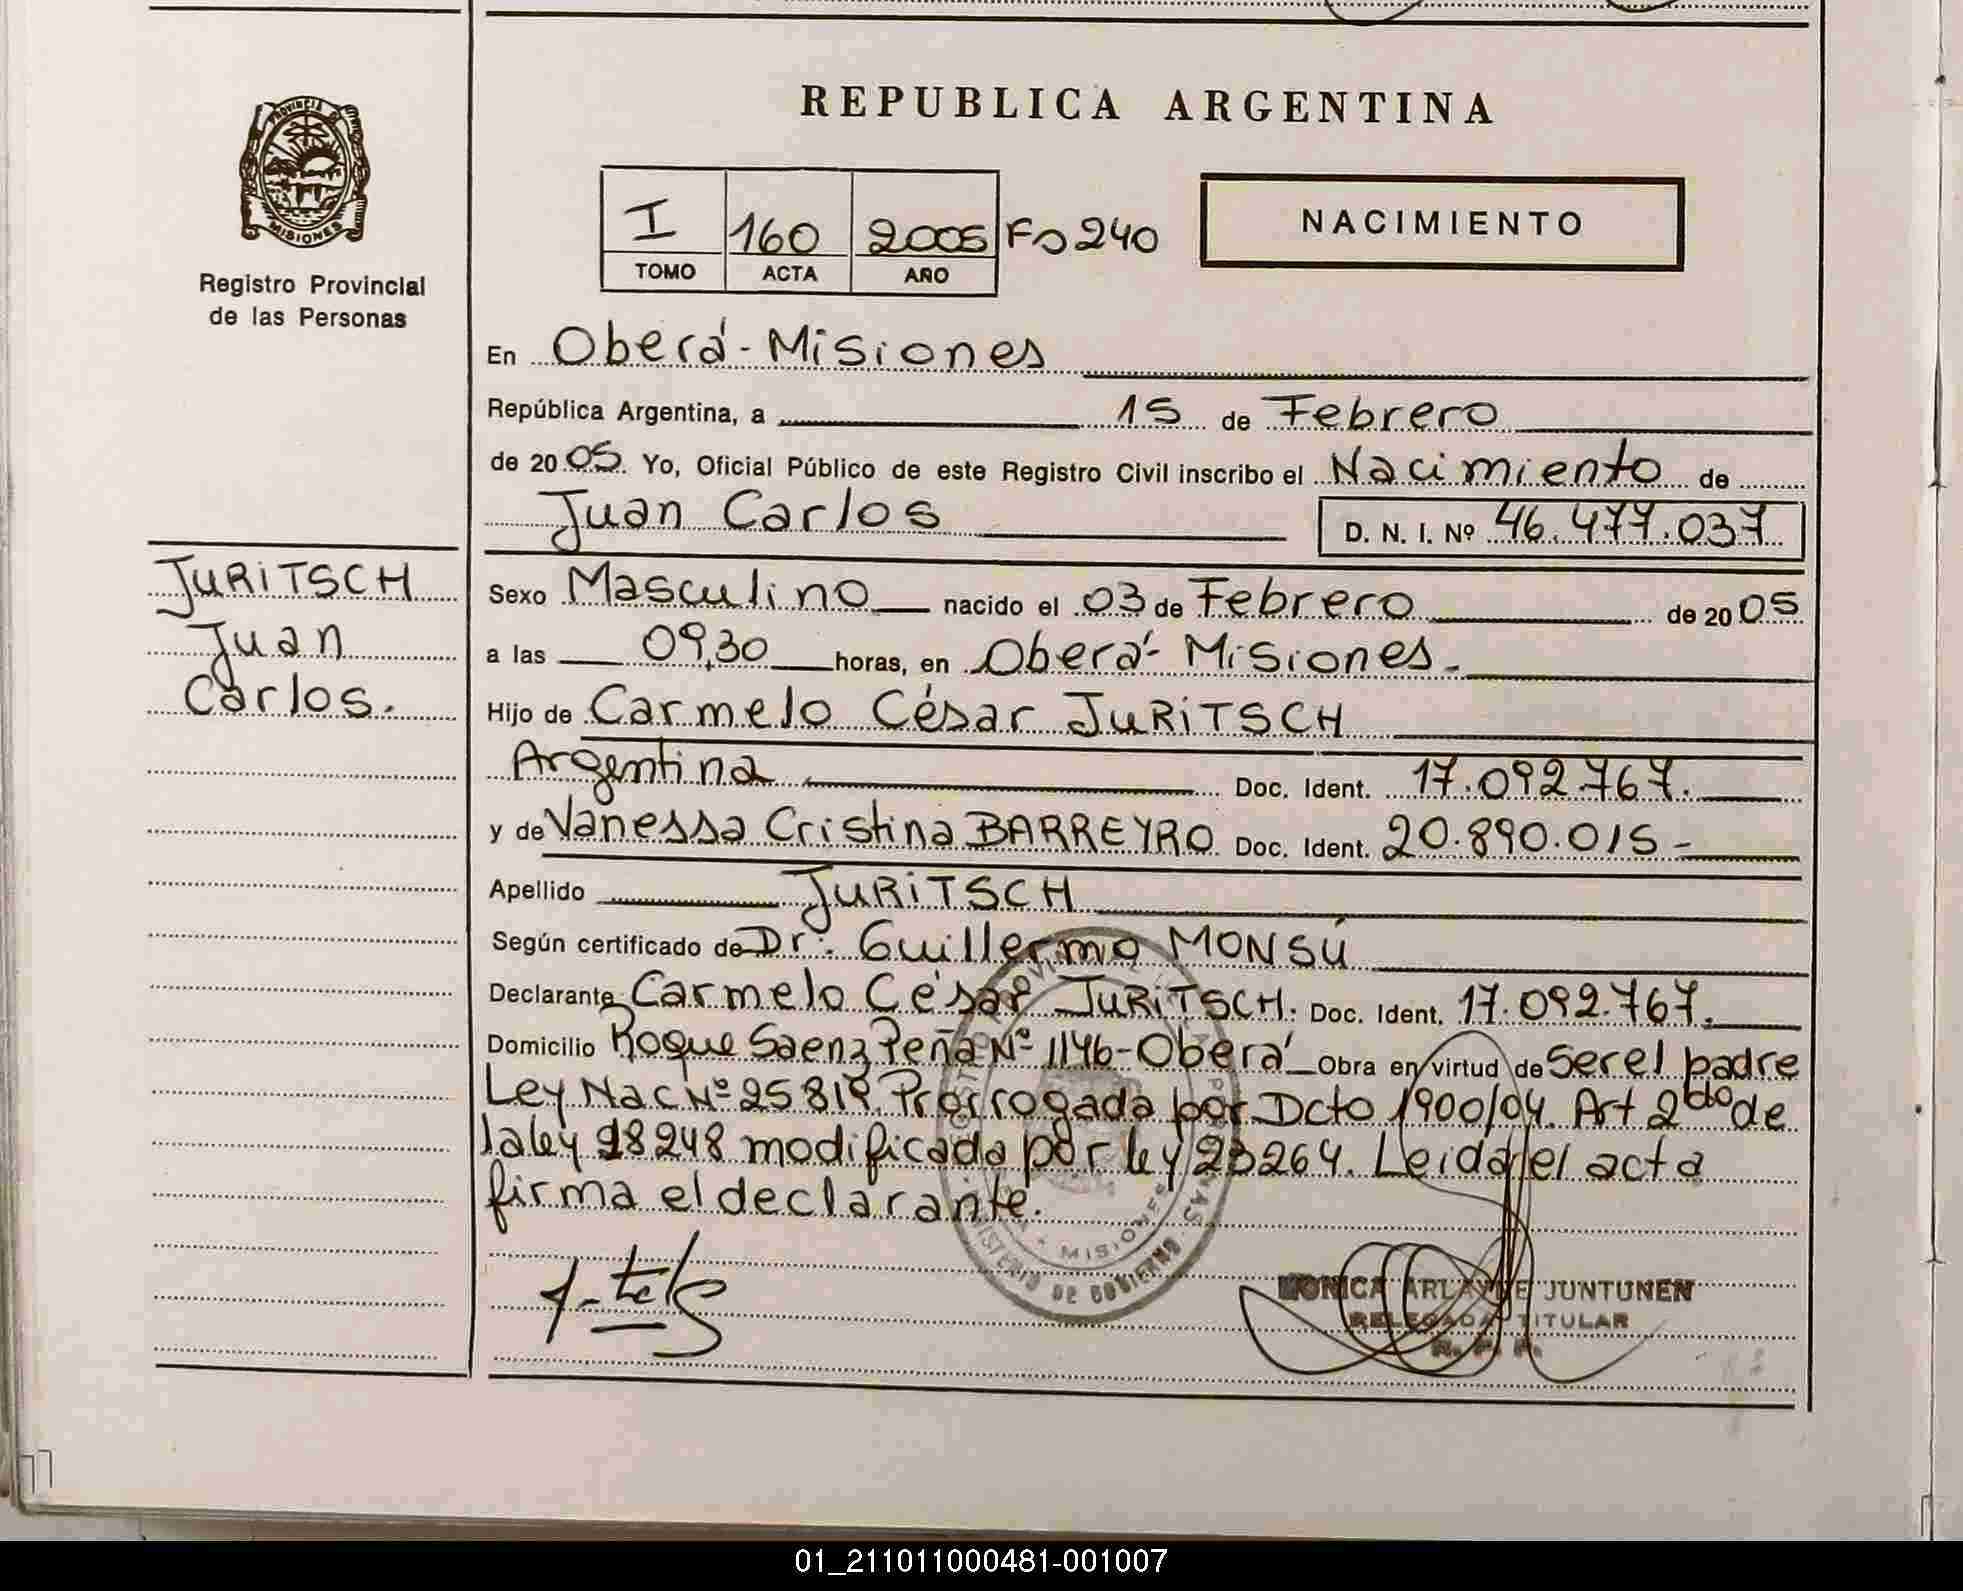 REPUBLICA ARGENTINA
PROVINCIA D MISIONES
Registro Provincial
de las Personas
I 160 2005 Fo 240
TOMO ACTA AÑO
NACIMIENTO
En Oberá - Misiones
República Argentina, a 15 de Febrero
de 2005. Yo, Oficial Público de este Registro Civil inscribo el Nacimiento de
Juan Carlos D. N. I. Nº 46.477.037
JURITSCH
Juan
Carlos.
Sexo Masculino nacido el 03 de Febrero de 2005
a las 09,30 horas, en Oberá - Misiones.
Hijo de Carmelo César JURITSCH
Argentina Doc. Ident. 17.092.767.
y de Vanessa Cristina BARREYRO Doc. Ident. 20.890.015 -
Apellido JURITSCH
Según certificado de Dr: Guillermo MONSÚ
Declarante Carmelo César JURITSCH. Doc. Ident. 17.092.767.
Domicilio Roque Saenz Peña Nº 1146 - Oberá Obra en virtud de Ser el padre
Ley Nac Nº 25819. Prorrogada por Dcto 1900/04. Art 2do de
la ley 18248 modificada por ley 23264. Leida el acta
firma el declarante.
MISIONES
MINISTERIO DE GOBIERNO
MONICA ARLAYNE JUNTUNEN
DELEGADA TITULAR
R. P. P.
01_211011000481-001007